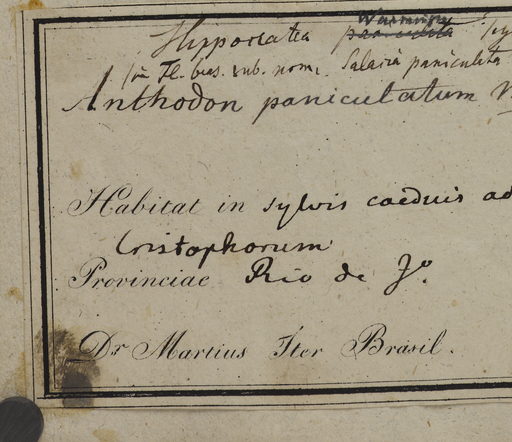 Hippocratea paniculata Warmingi
in Fl. bras. sub. nom. Salacia paniculata
Anthodon paniculatum
Habitat in sylvis caeduis ad
Cristophorum
Provinciae Rio de Jº.
Dr Martius Iter Brasil.